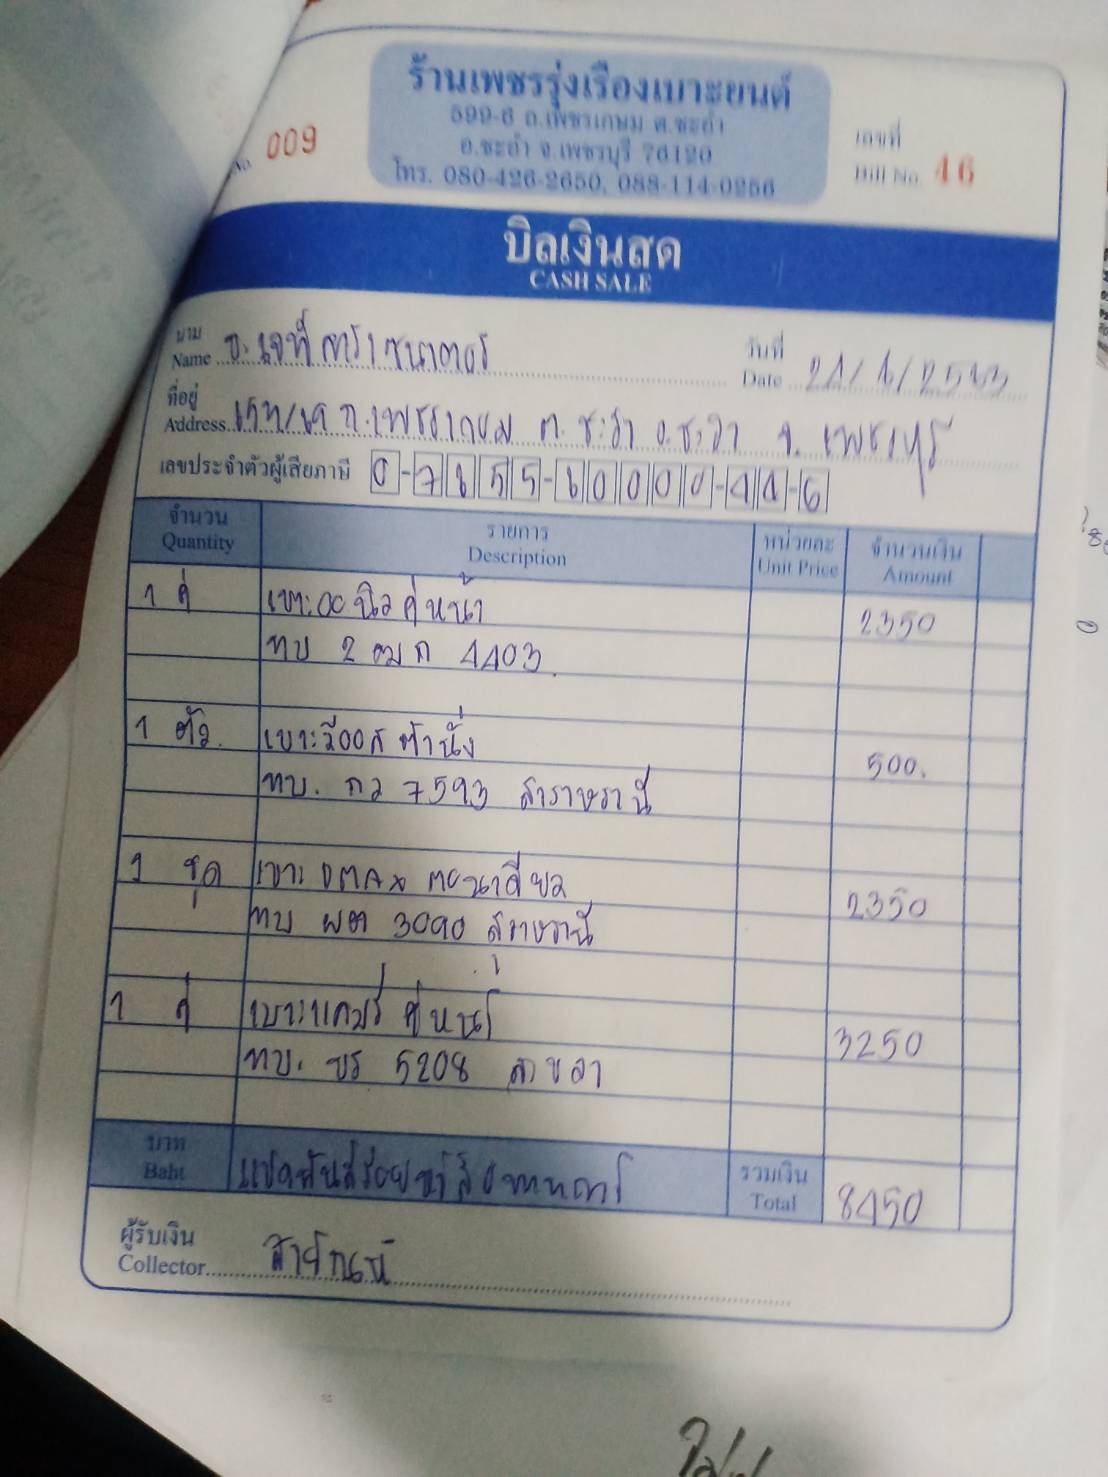 ร้านเพชรรุ่งเรืองเบาะยนต์
599-6 ถ.เพชรเกษม ต.ชะอำ
อ.ชะอำ จ.เพชรบุรี 76120
โทร. 080-426-2650, 088-114-0256
No. 009
เลขที่
Bill No. 46
บิลเงินสด
CASH SALE
นาม
Name
วันที่
Date
ที่อยู่
Address ถ.เพชรเกษม ต. ชะอำ อ.ชะอำ จ. เพชรบุรี
เลขประจำตัวผู้เสียภาษี
จำนวน
Quantity
รายการ
Description
หน่วยละ
Unit Price
จำนวนเงิน
Amount
1 คู่ คู่หน้า 2350
ทบ 2 ฒก 4403
1 ตัว เบาะวีออส 500.
ทบ. กว 7593
1 ชุด เบาะ DMAX 2350
ทบ ผต 3090
1 คู่ เบาะแคมรี่ คู่หน้า 3250
ทบ. ขร 5208
บาท
Baht
แปดพันสี่ร้อยห้าสิบบาทถ้วน
รวมเงิน
Total
8450
ผู้รับเงิน
Collector